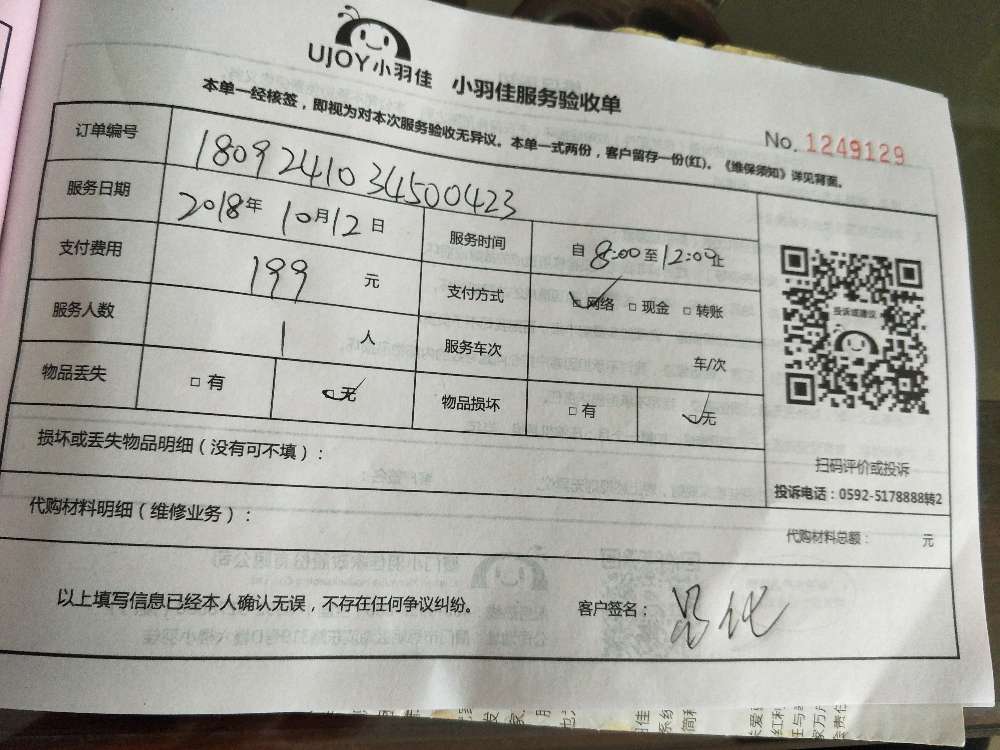 UJOY小羽佳 小羽佳服务验收单
本单一经核签，即视为对本次服务验收无异议。本单一式两份，客户留存一份(红)。《维保须知》详见背面。
No. 1249129
订单编号 1809241034500423
服务日期 2018年 10月12日 服务时间 自 8:00至12:00止
支付费用 199 元 支付方式 网络 现金 转账
服务人数 1 人 服务车次 车/次
物品丢失 有 无 物品损坏 有 无
投诉或建议
扫码评价或投诉
投诉电话：0592-5178888转2
损坏或丢失物品明细（没有可不填）：
代购材料明细（维修业务）：
代购材料总额： 元
以上填写信息已经本人确认无误，不存在任何争议纠纷。 客户签名：